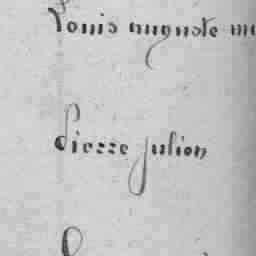 Louis auguste
pierre julien